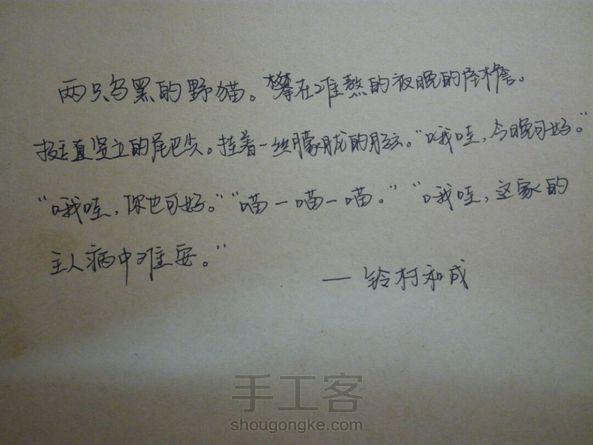 两只乌黑的野猫。攀在难熬的夜晚的屋檐。
挺直竖立的尾巴尖。挂着一丝朦胧的。"哦哇，今晚可好。"
"哦哇，你也可好。""喵一喵一喵。""哦哇，这家的
主人病中难安。"
— 铃村和成
手工客
shougongke.com